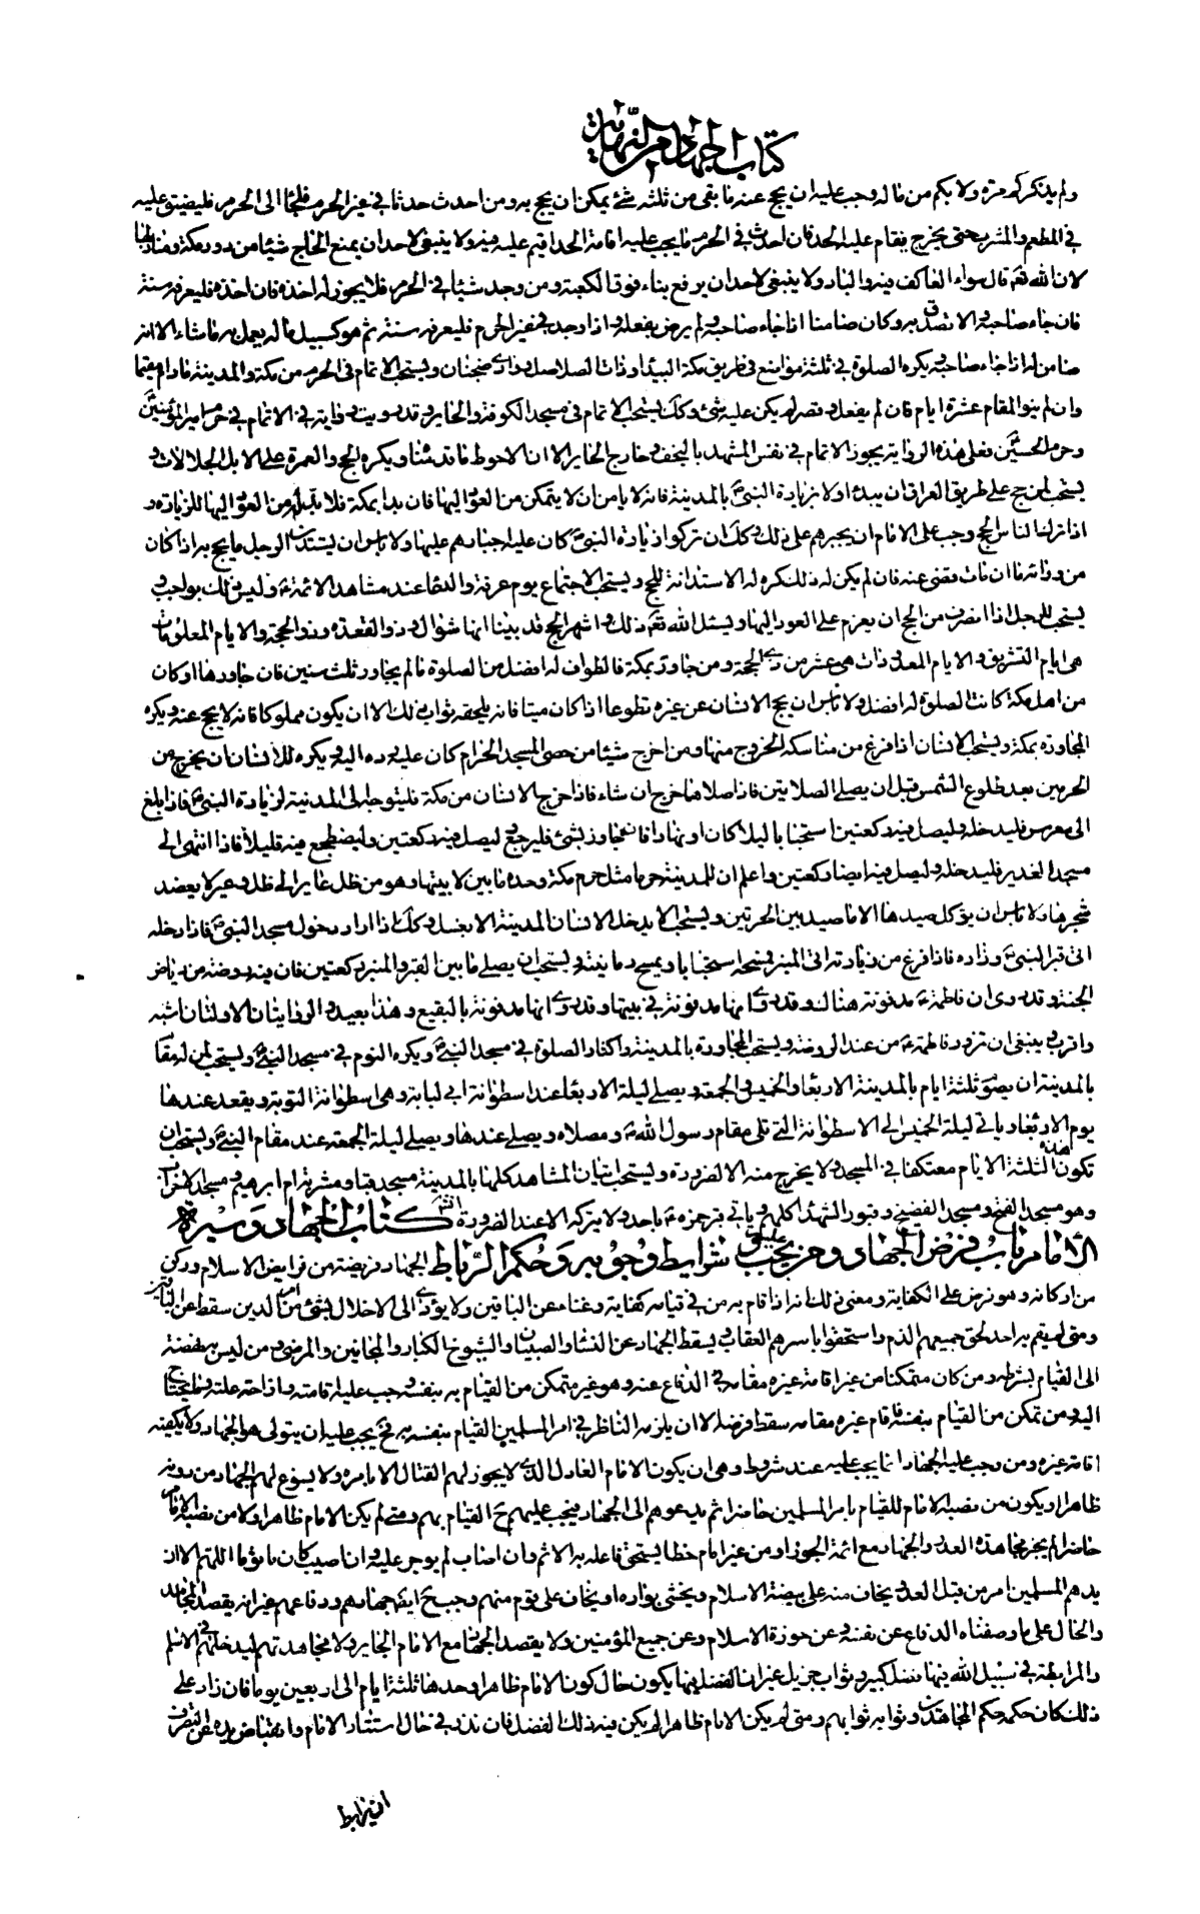 كتاب الجهاد من النهاية
ولم يذكر كم مرة ولا بكم من ماله وجب عليه ان يحج عنه ما بقى من ثلثه شئ يمكن ان يحج به ومن احدث حدثا في غير الحرم فلجأ الى الحرم فليضيق عليه
في المطعم والمشرب حتى يخرج فيقام عليه الحد فان احدث في الحرم ما يجب عليه اقامة الحد اقيم عليه فيه ولا ينبغى لاحد ان يمنع الحاج شيئا من دور مكة ومنازلها
لان الله تعم قال سواء العاكف فيه والباد ولا ينبغى لاحد ان يرفع بناء فوق الكعبة ومن وجد شيئا في الحرم فلا يجوز له اخذه فان اخذه فليعرفه سنة
فان جاء صاحبه والا تصدق به وكان ضامنا اذا جاء صاحبه ولم يرض بفعله واذا وجد في غير الحرم فليعرفه سنة ثم هو كسبيل ماله يعمل به ما شاء الا انه
ضامن له اذا جاء صاحبه ويكره الصلوة في ثلثة مواضع في طريق مكة البيداء وذات الصلاصل ووادى ضجنان ويستحب الاتمام في الحرمين مكة والمدينة ما دام مقيما
وان لم ينو المقام عشرة ايام فان لم يفعل وقصر لم يكن عليه شئ وكك يستحب الاتمام في مسجد الكوفة والحاير وقد رويت رواية في الاتمام في حرم امير المؤمنين ع
وحرم الحسين ع فعلى هذه الرواية يجوز الاتمام في نفس المشهد بالنجف وخارج الحاير الا ان الاحوط ما قدمناه ويكره الحج والعمرة على الابل الجلالات و
يستحب لمن حج على طريق العراق ان يبدء اولا بزيارة النبى ص بالمدينة فانه لا يامن ان لا يتمكن من العود اليها فان بدا بمكة فلا بد له من العود اليها للزيارة و
اذا ترك الناس الحج وجب على الامام ان يجبرهم على ذلك وكك ان تركوا زيارة النبى ص كان عليه اجبارهم عليها ولا باس ان يستدين الرجل ما يحج به اذا كان
من ورائه ما ان مات قضى عنه فان لم يكن له ذلك كره له الاستدانة للحج ويستحب الاجتماع يوم عرفة والدعاء عند مشاهد الائمة ع وليس ذلك بواجب و
يستحب للرجل اذا انصرف من الحج ان يعزم على العود اليها ويسئل الله تعم ذلك واشهر الحج قد بينا انها شوال وذو القعدة وذو الحجة والايام المعلومات
هى ايام التشريق والايام المعدودات هى عشر من ذى الحجة ومن جاور بمكة فالطواف له افضل من الصلوة ما لم يجاور ثلث سنين فان جاورها او كان
من اهل مكة كانت الصلوة له افضل ولا باس ان يحج الانسان عن غيره تطوعا اذا كان ميتا فانه يلحقه ثواب ذلك الا ان يكون مملوكا فانه لا يحج عنه ويكره
المجاورة بمكة ويستحب للانسان اذا فرغ من مناسكه الخروج منها ومن اخرج شيئا من حصى المسجد الحرام كان عليه رده اليه ويكره للانسان ان يخرج من
الحرمين بعد طلوع الشمس قبل ان يصلى الصلاتين فاذا صلاهما خرج ان شاء فاذا خرج الانسان من مكة فليتوجه الى المدينة لزيارة النبى ص فاذا بلغ
الى معرس فليدخله وليصل فيه ركعتين استحبابا ليلا كان او نهارا فان تجاوز نسى فليرجع وليصل فيه ركعتين وليضطجع فيه قليلا فاذا انتهى الى
مسجد الغدير فليدخله وليصل فيه ايضا ركعتين واعلم ان للمدينة حرما مثل حرم مكة وحده ما بين لابيتها وهو من ظل عاير الى ظل وعير لا يعضد
شجرها ولا باس ان يؤكل صيدها الا ما صيد بين الحرتين ويستحب الا يدخل الانسان المدينة الا بغسل وكك اذا اراد دخول مسجد النبى ص فاذا دخله
اتى قبر النبى ص وزاره فاذا فرغ من زيارته اتى المنبر ويسحه استحبابا ويمسح رمانتيه ويستحب ان يصلى ما بين القبر والمنبر ركعتين فان فيه روضة من رياض
الجنة وقد روى ان فاطمة ع مدفونة هناك وقد روى انها مدفونة في بيتها وقد روى انها مدفونة بالبقيع وهذا بعيد والروايتان الاولتان اشبه
واقرب وينبغى ان تزور فاطمة ع من عند الروضة ويستحب المجاورة بالمدينة واكثار الصلوة في مسجد النبى ص ويكره النوم في مسجد النبى ص ويستحب لمن له مقام
بالمدينة ان يصوم ثلثة ايام بالمدينة الاربعاء والخميس والجمعة ويصلى ليلة الاربعاء عند اسطوانة ابى لبابة وهى اسطوانة التوبة ويقعد عندها
يوم الاربعاء وياتى ليلة الخميس الى الاسطوانة التى تلى مقام رسول الله ص ومصلاه ويصلى عندها ويصلى ليلة الجمعة عند مقام النبى ص ويستحب ان
تكون هذه الثلثة الايام معتكفا في المسجد ولا يخرج منه الا لضرورة ويستحب اتيان المشاهد كلها بالمدينة مسجد قبا ومشربة ام ابرهيم ومسجد الاحزاب
وهو مسجد الفتح ومسجد الفضيخ وقبور الشهداء كلهم وياتى قبر حمزة ع باحد ولا يتركه الا عند الضرورة انش كتاب الجهاد وسيرة
الامام باب فرض الجهاد ومن يجب عليه وشرايط وجوبه وحكم الرباط الجهاد فريضة من فرايض الاسلام وركن
من اركانه وهو فرض على الكفاية ومعنى ذلك انه اذا قام به من في قيامه كفاية وغناء عن الباقين ولا يؤدى الى الاخلال بشئ من امر الدين سقط عن الباقين
ومتى لم يقم به احد لحق جميعهم الذم واستحقوا باسرهم العقاب ويسقط الجهاد عن النساء والصبيان والشيوخ الكبار والمجانين والمرضى ومن ليس به نهضة
الى القيام بشرطه ومن كان متمكنا من غير اقامة غيره مقامه في الدفاع عنه وهو غير متمكن من القيام به بنفسه وجب عليه اقامته وازاحة علته فيما يحتاج
اليه ومن تمكن من القيام بنفسه فاقام غيره مقامه سقط فرضه الا ان يلزمه الناظر في امر المسلمين القيام بنفسه فح يجب عليه ان يتولى هو الجهاد ولا يكفيه
اقامة غيره ومن وجب عليه الجهاد انما يجب عليه عند شروط وهى ان يكون الامام العادل الذى لا يجوز لهم القتال الا بامره ولا يسوغ لهم الجهاد من دونه
ظاهرا ويكون من نصبه الامام للقيام بامر المسلمين حاضرا ثم يدعوهم الى الجهاد فيجب عليهم ح القيام بهم ومتى لم يكن الامام ظاهرا ولا من نصبه الامام
حاضرا لم يجز مجاهدة العدو والجهاد مع ائمة الجور او من غير امام خطا يستحق فاعله به الاثم وان اصاب لم يوجر عليه وان اصيب كان ماثوما اللهم الا ان
يدهم المسلمين امر من قبل العدو يخاف منه على بيضة الاسلام ويخشى بواره او يخاف على قوم منهم وجب ح ايضا جهادهم ودفاعهم غير انه يقصد المجاهد
والحال على ما وصفناه الدفاع عن نفسه وعن حوزة الاسلام وعن جميع المؤمنين ولا يقصد الجهاد مع الامام الجاير ولا مجاهدتهم ليدخلهم في الاسلام
والمرابطة في سبيل الله فيها فضل كبير وثواب جزيل غير ان الفضل فيها يكون حال كون الامام ظاهرا وحدها ثلثة ايام الى اربعين يوما فان زاد على
ذلك كان حكمه حكم المجاهدين وثوابه ثوابهم ومتى لم يكن الامام ظاهرا لم يكن فيه ذلك الفضل فان نذر في حال استتار الامام وانقباض يده عن التصرف
ان يرابط